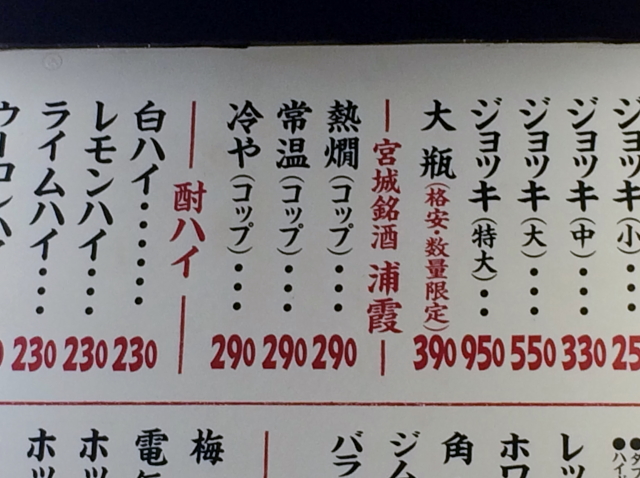 ジョッキ(小)・・
ジョッキ(中)・・330
ジョッキ(大)・・・550
ジョッキ(特大)・・950
大瓶(格安・数量限定)390
宮城銘酒 浦霞
熱燗(コップ)・・・290
常温(コップ)・・・290
冷や(コップ)・・・290
酎ハイ
白ハイ・・・・・・230
レモンハイ・・・230
ライムハイ・・・230
角
梅